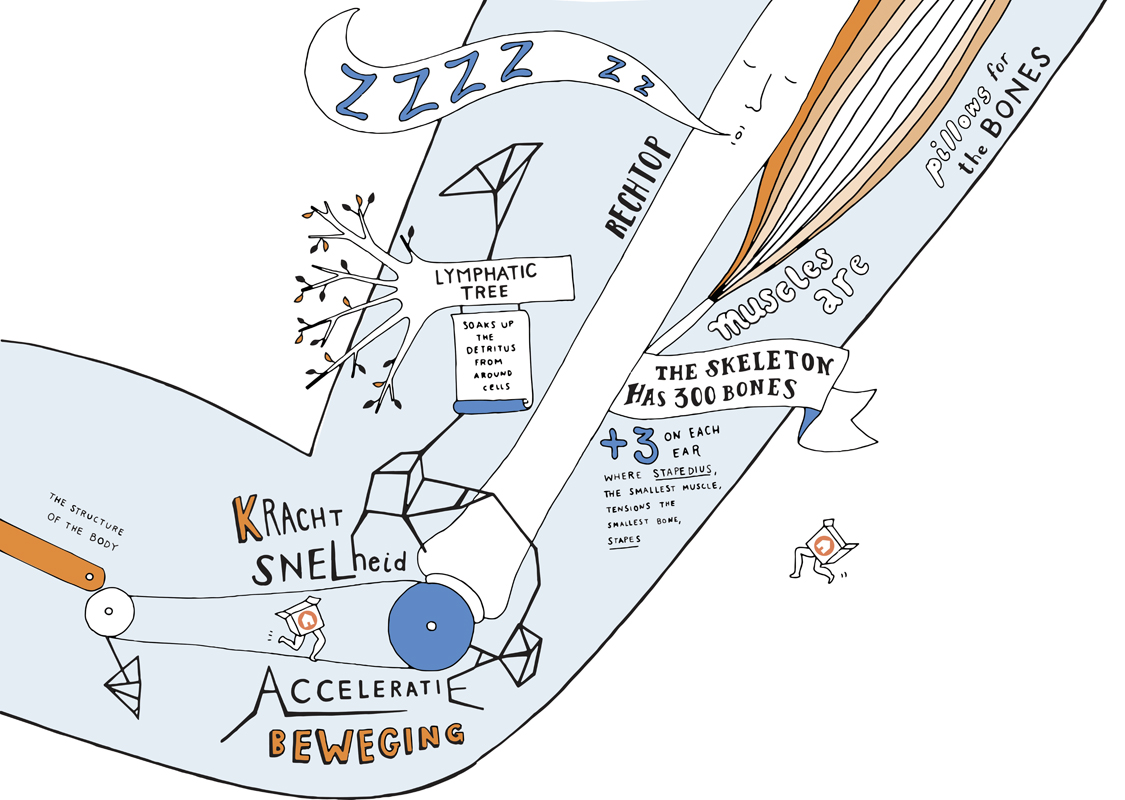 ZZZZ ZZ
pillows for
the BONES
RECHTOP
LYMPHATIC
TREE
SOAKS UP
THE
DETRITUS
FROM
AROUND
CELLS
muscles
are
THE SKELETON
HAS 300 BONES
+3 ON EACH
EAR
WHERE STAPEDIUS,
THE SMALLEST MUSCLE,
TENSIONS THE
SMALLEST BONE,
STAPES
THE STRUCTURE
OF THE BODY
KRACHT
SNELheid
ACCELERATIE
BEWEGING